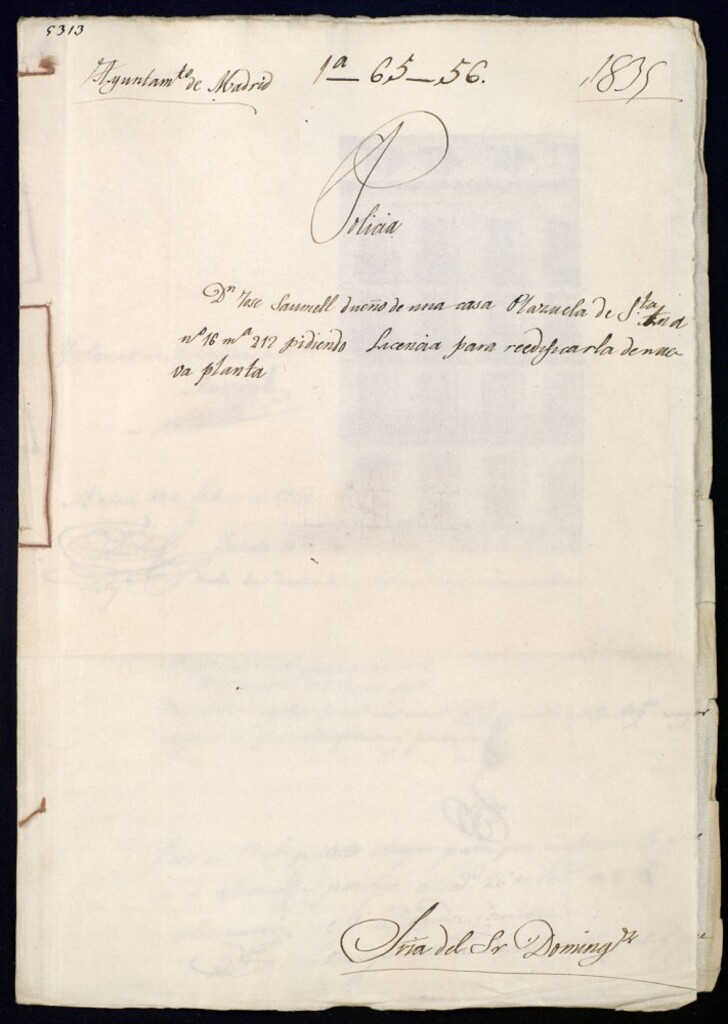 5313
Ayuntam.to de Madrid 1ª — 65 — 56. 1835
Policia
Dn Jose Saumell dueño de una casa Plazuela de S.ta Ana
nº 16 mª 212 pidiendo Licencia para reedificarla de nue-
va planta
Sria del Sr Doming.z